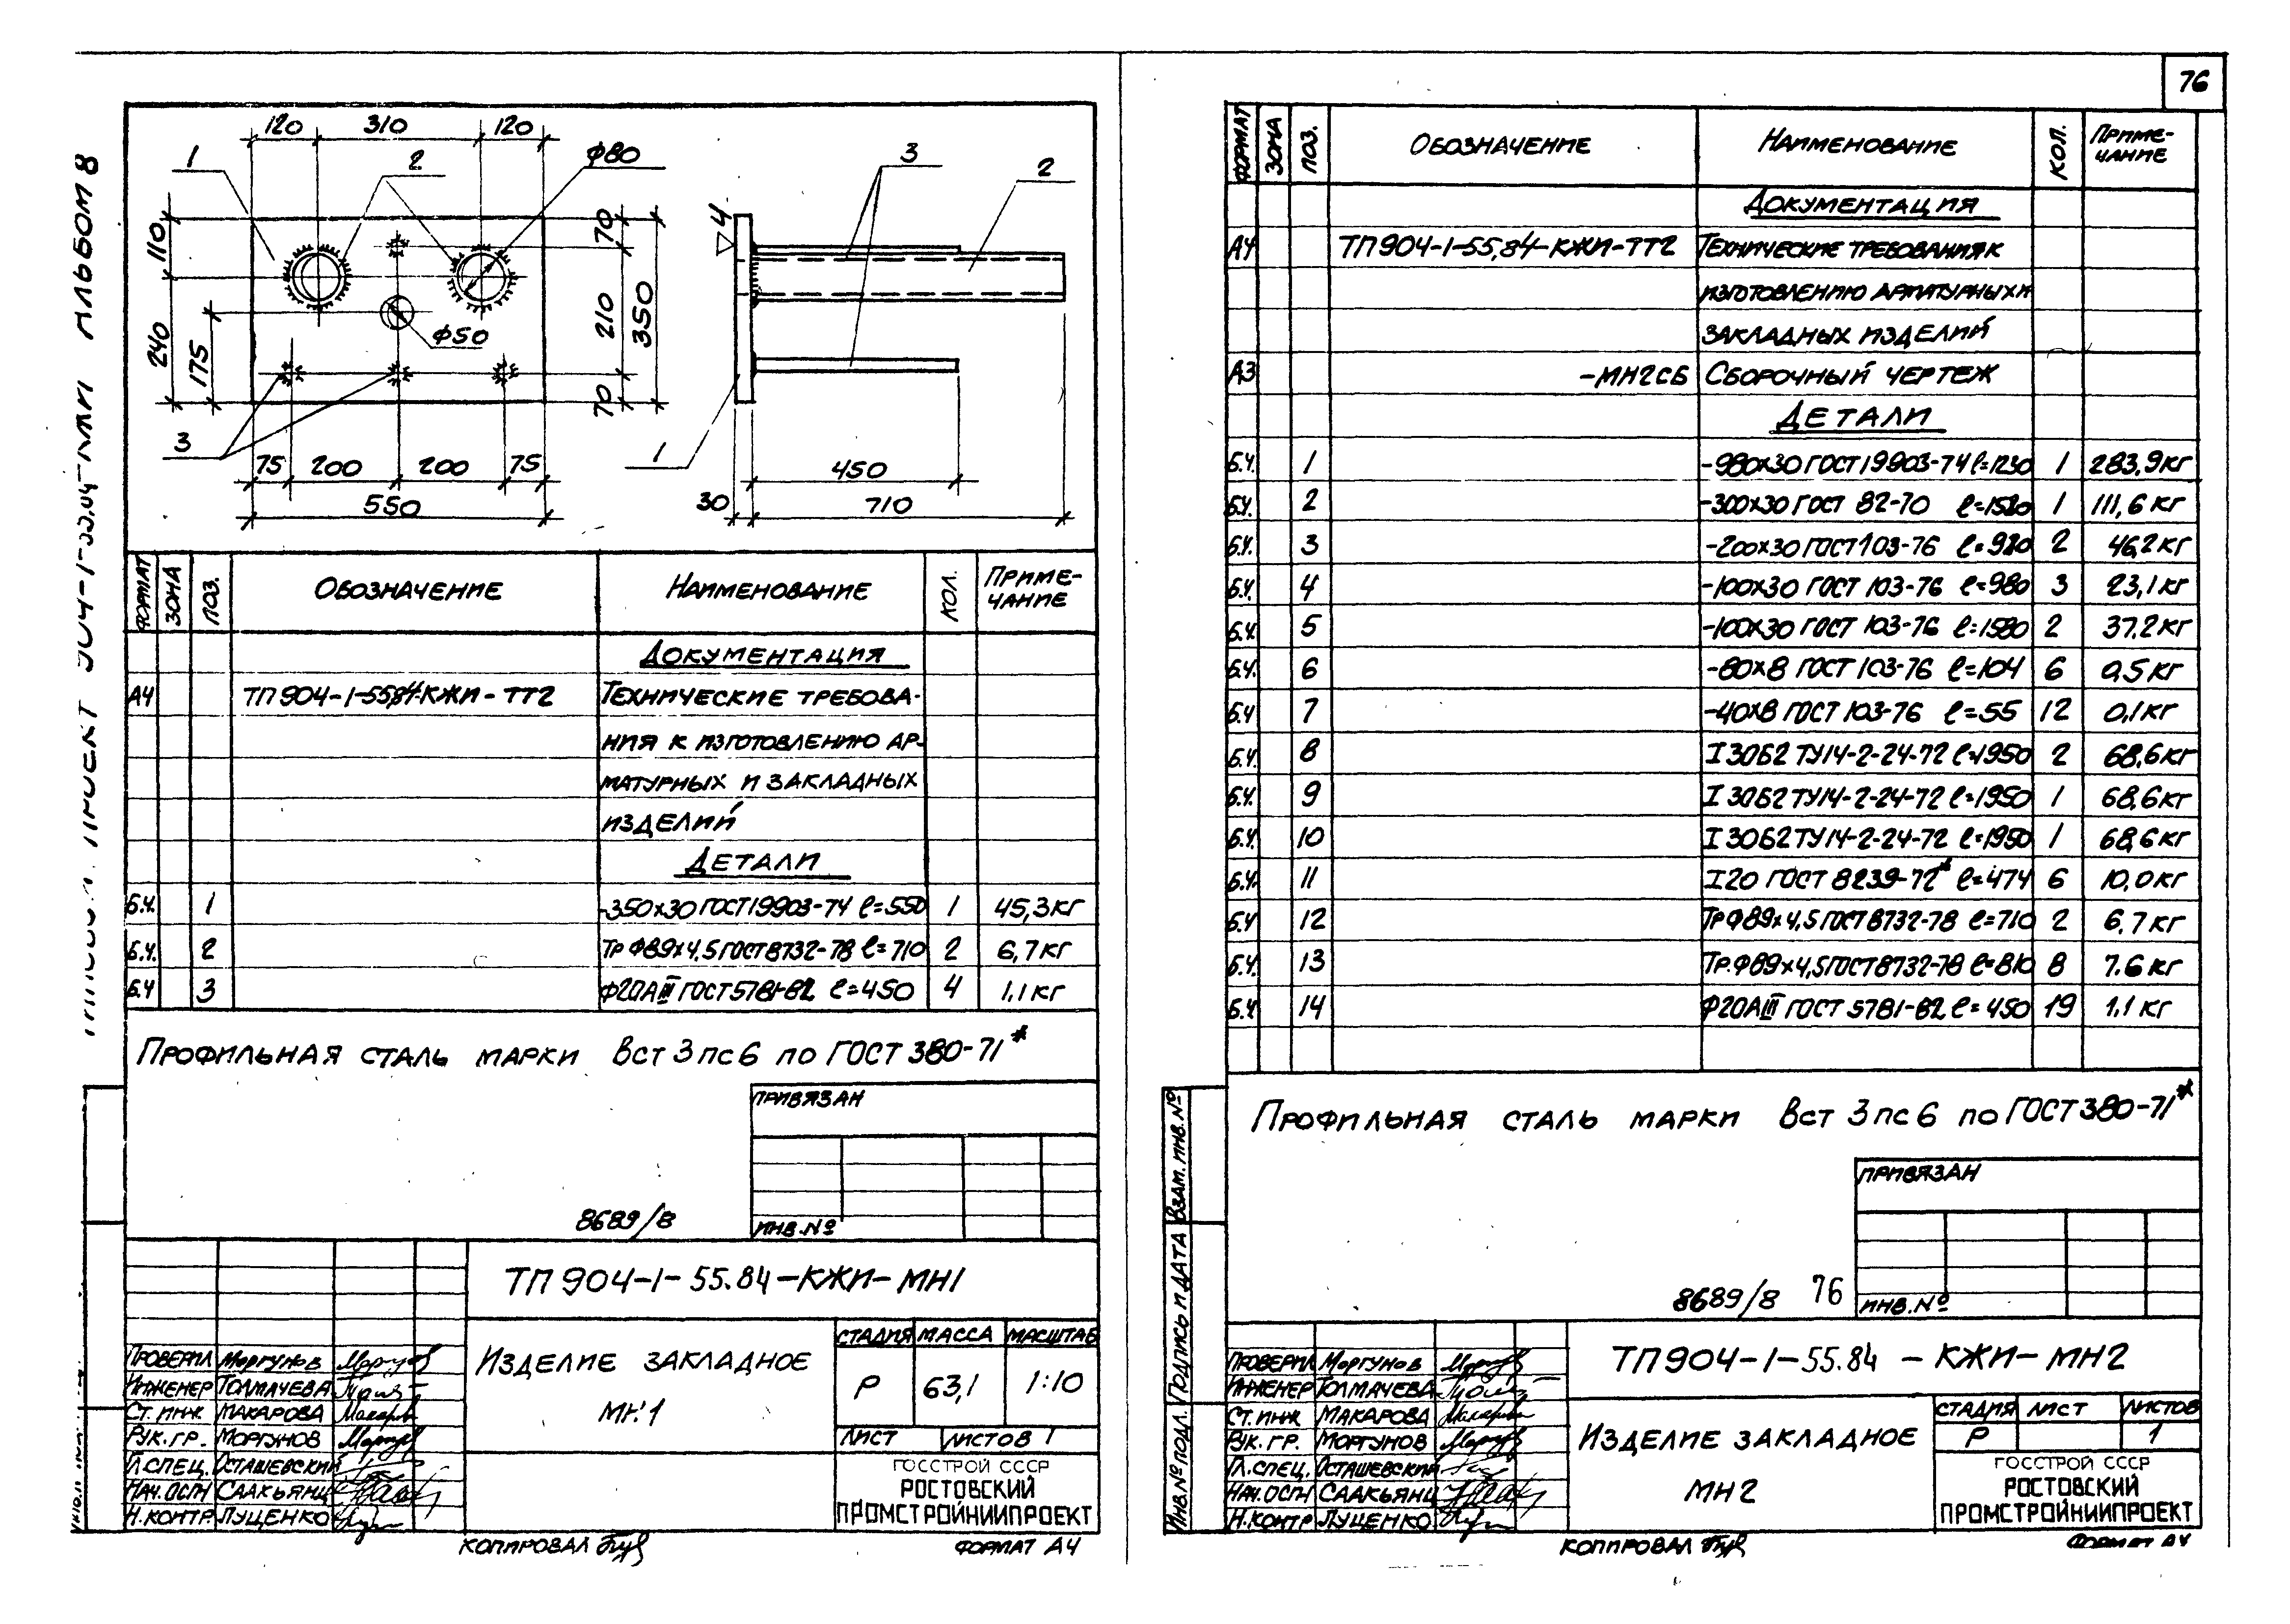 76
АЛЬБОМ 8
120 310 120
1 2 Ф80 3 2
110 70 4
240 175 Ф50 210 350
70
3 1
75 200 200 75 450
550 30 710
ФОРМАТ ЗОНА ПОЗ. ОБОЗНАЧЕНИЕ НАИМЕНОВАНИЕ КОЛ. ПРИМЕ-
ЧАНИЕ
ДОКУМЕНТАЦИЯ
А4 ТП 904-1-55.84-КЖИ-ТТ2 ТЕХНИЧЕСКИЕ ТРЕБОВА-
НИЯ К ИЗГОТОВЛЕНИЮ АР-
МАТУРНЫХ И ЗАКЛАДНЫХ
ИЗДЕЛИЙ
ДЕТАЛИ
Б.Ч. 1 -350х30 ГОСТ 19903-74 ℓ=550 1 45,3 кг
Б.Ч. 2 Тр Ф89х4,5 ГОСТ 8732-78 ℓ=710 2 6,7 кг
Б.Ч 3 Ф20АIII ГОСТ 5781-82 ℓ=450 4 1,1 кг
ПРОФИЛЬНАЯ СТАЛЬ МАРКИ Вст 3 пс 6 по ГОСТ 380-71*
ПРИВЯЗАН
8689/8 ИНВ.№
ТП 904-1-55.84-КЖИ-МН1
ИЗДЕЛИЕ ЗАКЛАДНОЕ
МН1
СТАДИЯ МАССА МАСШТАБ
Р 63,1 1:10
ЛИСТ ЛИСТОВ 1
ПРОВЕРИЛ МОРГУНОВ
ИНЖЕНЕР ТОЛМАЧЕВА
СТ. ИНЖ МАКАРОВА
РУК. ГР. МОРГУНОВ
ГЛ.СПЕЦ. ОСТАШЕВСКИЙ
НАЧ.ОСПН СААКЬЯНЦ
Н.КОНТР. ЛУЦЕНКО
ГОССТРОЙ СССР
РОСТОВСКИЙ
ПРОМСТРОЙНИИПРОЕКТ
КОПИРОВАЛ ФОРМАТ А4
ФОРМАТ ЗОНА ПОЗ. ОБОЗНАЧЕНИЕ НАИМЕНОВАНИЕ КОЛ. ПРИМЕ-
ЧАНИЕ
ДОКУМЕНТАЦИЯ
А4 ТП 904-1-55.84-КЖИ-ТТ2 ТЕХНИЧЕСКИЕ ТРЕБОВАНИЯ К
ИЗГОТОВЛЕНИЮ АРМАТУРНЫХ И
ЗАКЛАДНЫХ ИЗДЕЛИЙ
А3 -МН2СБ СБОРОЧНЫЙ ЧЕРТЕЖ
ДЕТАЛИ
Б.Ч. 1 -980х30 ГОСТ 19903-74 ℓ=1230 1 283,9 кг
Б.Ч. 2 -300х30 ГОСТ 82-70 ℓ=1580 1 111,6 кг
Б.Ч. 3 -200х30 ГОСТ 103-76 ℓ=980 2 46,2 кг
Б.Ч. 4 -100х30 ГОСТ 103-76 ℓ=980 3 23,1 кг
Б.Ч. 5 -100х30 ГОСТ 103-76 ℓ=1580 2 37.2 кг
Б.Ч. 6 -80х8 ГОСТ 103-76 ℓ=104 6 0,5 кг
Б.Ч 7 -40х8 ГОСТ 103-76 ℓ=55 12 0,1 кг
Б.Ч. 8 I 30Б2 ТУ14-2-24-72 ℓ=1950 2 68,6 кг
Б.Ч. 9 I 30Б2 ТУ14-2-24-72 ℓ=1950 1 68,6 кг
Б.Ч. 10 I 30Б2 ТУ14-2-24-72 ℓ=1950 1 68,6 кг
Б.Ч. 11 I 20 ГОСТ 8239-72* ℓ=474 6 10,0 кг
Б.Ч 12 Тр Ф89х4,5 ГОСТ 8732-78 ℓ=710 2 6,7 кг
Б.Ч. 13 Тр. Ф89х4,5 ГОСТ 8732-78 ℓ=810 8 7.6 кг
Б.Ч 14 Ф20АIII ГОСТ 5781-82 ℓ=450 19 1,1 кг
ПРОФИЛЬНАЯ СТАЛЬ МАРКИ Вст 3 пс 6 по ГОСТ 380-71*
ПРИВЯЗАН
8689/8 76 ИНВ.№
ВЗАМ. ИНВ.№
ПОДПИСЬ И ДАТА
ИНВ.№ ПОДЛ.
ТП 904-1-55.84-КЖИ-МН2
ИЗДЕЛИЕ ЗАКЛАДНОЕ
МН2
СТАДИЯ ЛИСТ ЛИСТОВ
Р 1
ПРОВЕРИЛ МОРГУНОВ
ИНЖЕНЕР ТОЛМАЧЕВА
СТ. ИНЖ МАКАРОВА
РУК. ГР. МОРГУНОВ
ГЛ.СПЕЦ. ОСТАШЕВСКИЙ
НАЧ.ОСПН СААКЬЯНЦ
Н.КОНТР ЛУЦЕНКО
ГОССТРОЙ СССР
РОСТОВСКИЙ
ПРОМСТРОЙНИИПРОЕКТ
КОПИРОВАЛ ФОРМАТ А4